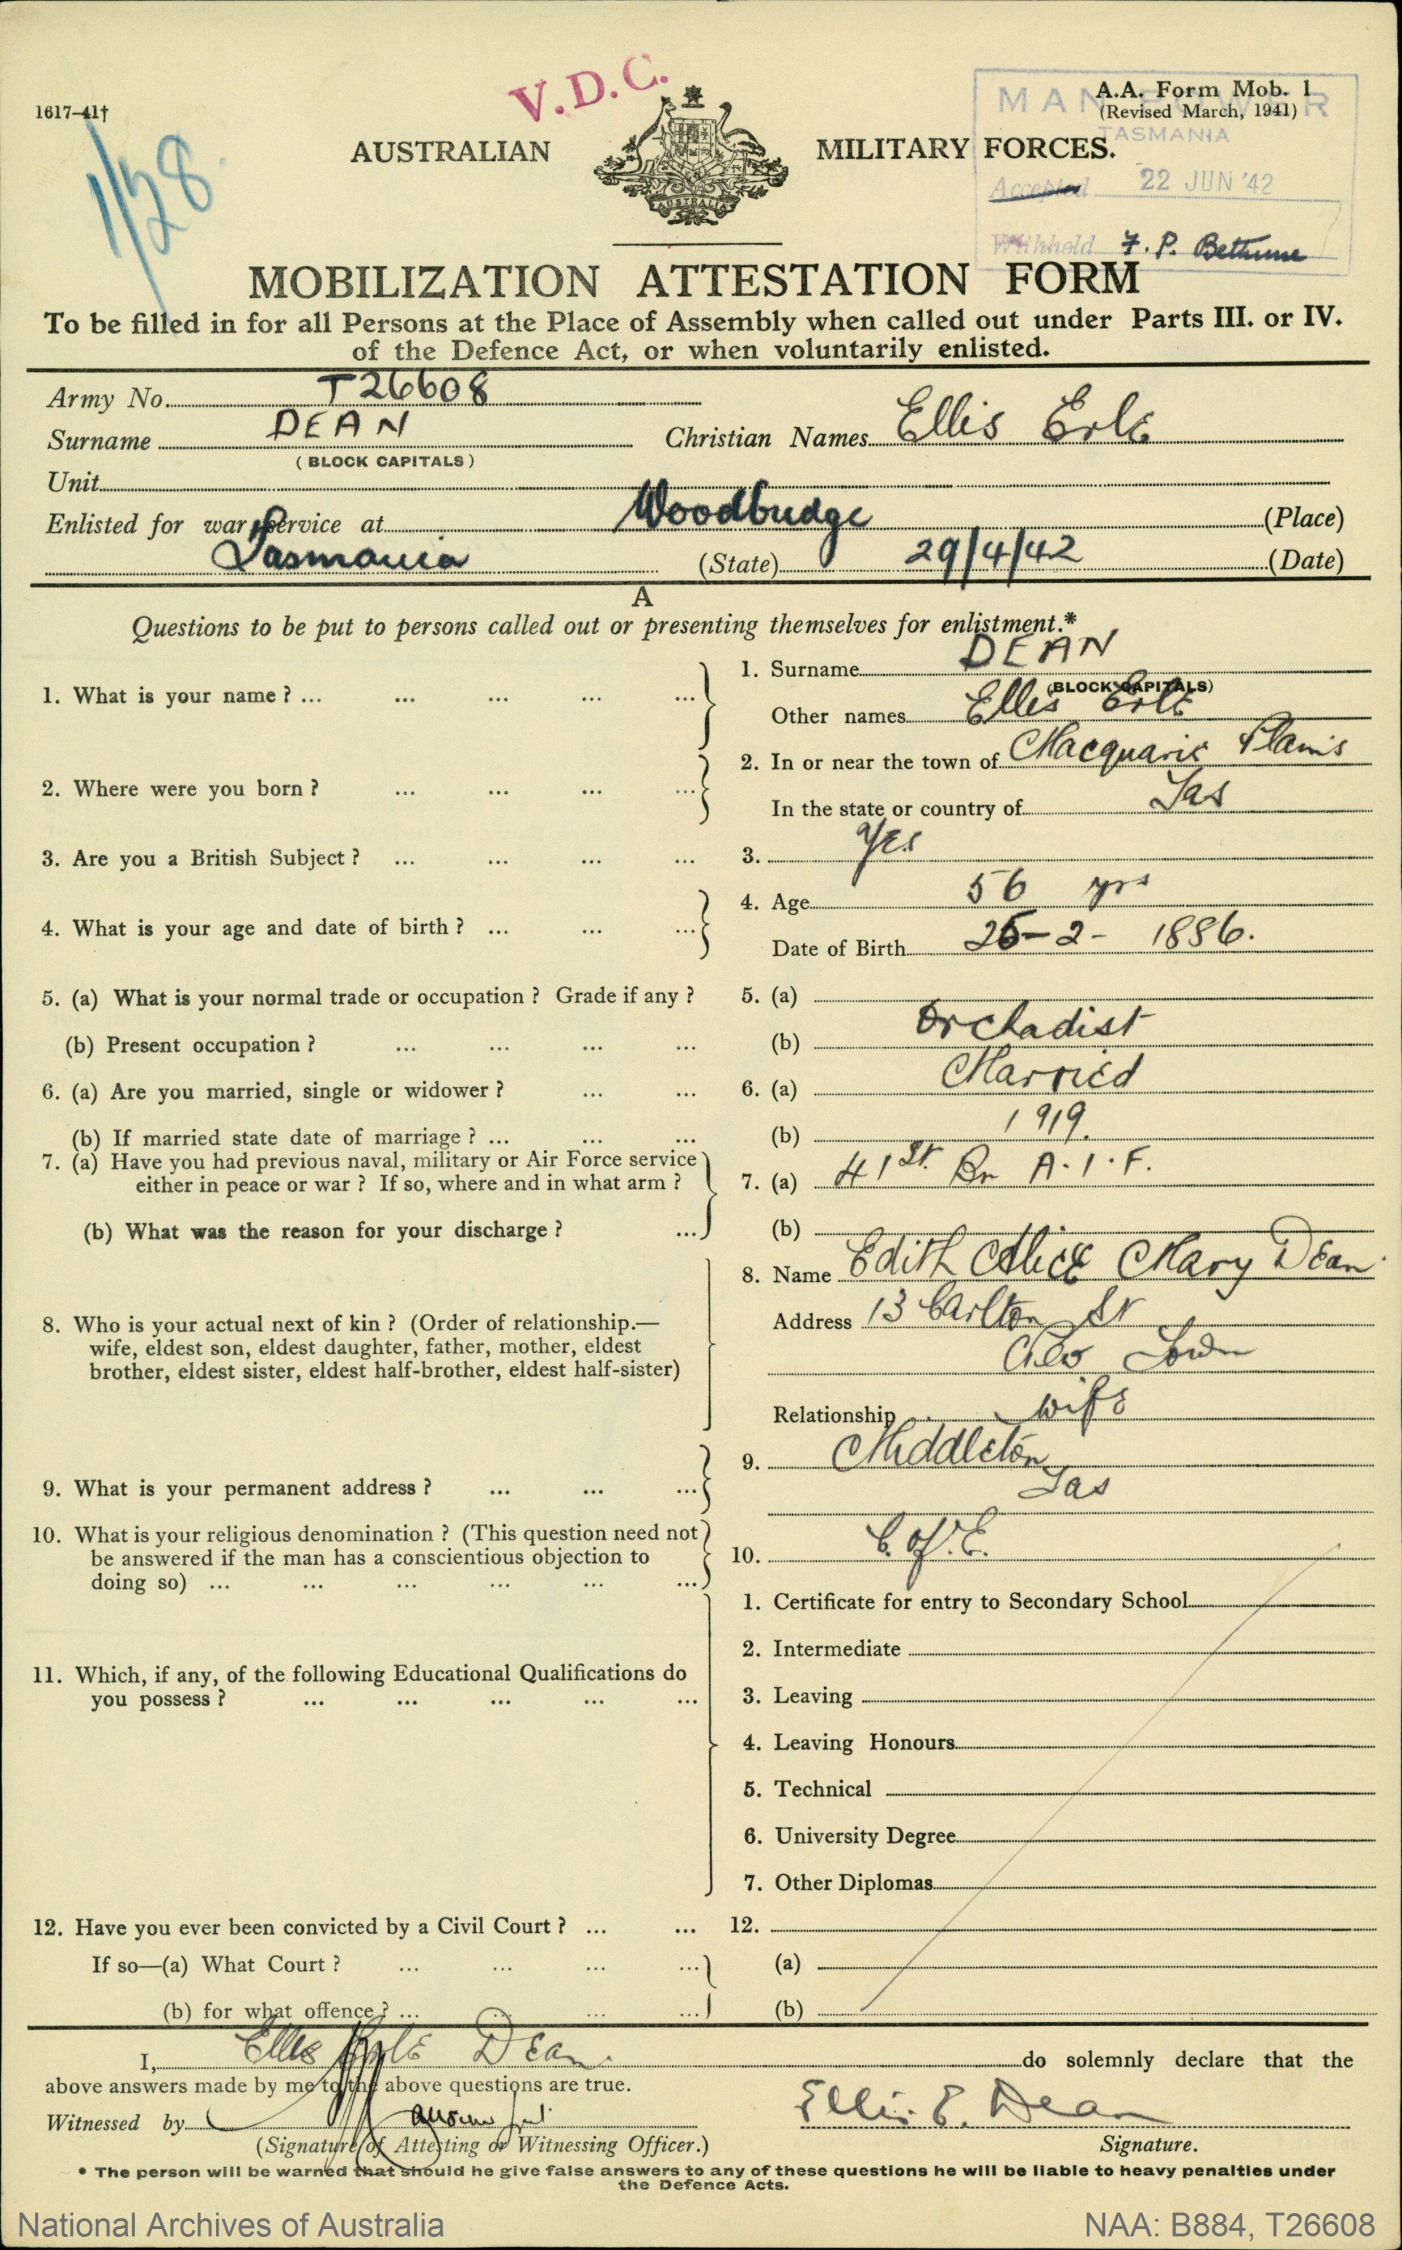 V.D.C.
1617–41†
1/28
A.A. Form Mob. 1
(Revised March, 1941)
MAN POWER
TASMANIA
AUSTRALIAN MILITARY FORCES.
AUSTRALIA
Accepted 22 JUN '42
Withheld F. P. Bethune
MOBILIZATION ATTESTATION FORM
To be filled in for all Persons at the Place of Assembly when called out under Parts III. or IV.
of the Defence Act, or when voluntarily enlisted.
Army No. T26608
Surname DEAN Christian Names Ellis Erle
(BLOCK CAPITALS)
Unit
Enlisted for war service at Woodbridge (Place)
Tasmania (State) 29/4/42 (Date)
A
Questions to be put to persons called out or presenting themselves for enlistment.*
1. What is your name? ... ... ... ... ...
1. Surname DEAN
(BLOCK CAPITALS)
Other names Ellis Erle
2. Where were you born? ... ... ... ...
2. In or near the town of Macquarie Plains
In the state or country of Tas
3. Are you a British Subject? ... ... ... ...
3. Yes
4. What is your age and date of birth? ... ... ...
4. Age 56 yrs
Date of Birth 26-2-1886.
5. (a) What is your normal trade or occupation? Grade if any?
5. (a)
(b) Present occupation? ... ... ... ...
(b) Orchadist
6. (a) Are you married, single or widower? ... ...
6. (a) Married
(b) If married state date of marriage? ... ... ...
(b) 1919.
7. (a) Have you had previous naval, military or Air Force service
either in peace or war? If so, where and in what arm?
7. (a) 41st Bn A.I.F.
(b) What was the reason for your discharge? ...
(b)
8. Who is your actual next of kin? (Order of relationship.—
wife, eldest son, eldest daughter, father, mother, eldest
brother, eldest sister, eldest half-brother, eldest half-sister)
8. Name Edith Alice Mary Dean
Address 13 Carlton St
Town
Relationship wife
9. What is your permanent address? ... ... ...
9. Middleton
Tas
10. What is your religious denomination? (This question need not
be answered if the man has a conscientious objection to
doing so) ... ... ... ... ... ...
10. C. of E.
11. Which, if any, of the following Educational Qualifications do
you possess? ... ... ... ... ...
1. Certificate for entry to Secondary School
2. Intermediate
3. Leaving
4. Leaving Honours
5. Technical
6. University Degree
7. Other Diplomas
12. Have you ever been convicted by a Civil Court? ... ...
12.
If so—(a) What Court? ... ... ... ...
(a)
(b) for what offence? ... ... ... ...
(b)
I, Ellis Erle Dean. do solemnly declare that the
above answers made by me to the above questions are true.
Witnessed by
Ellis E. Dean
(Signature of Attesting or Witnessing Officer.) Signature.
* The person will be warned that should he give false answers to any of these questions he will be liable to heavy penalties under
the Defence Acts.
National Archives of Australia NAA: B884, T26608